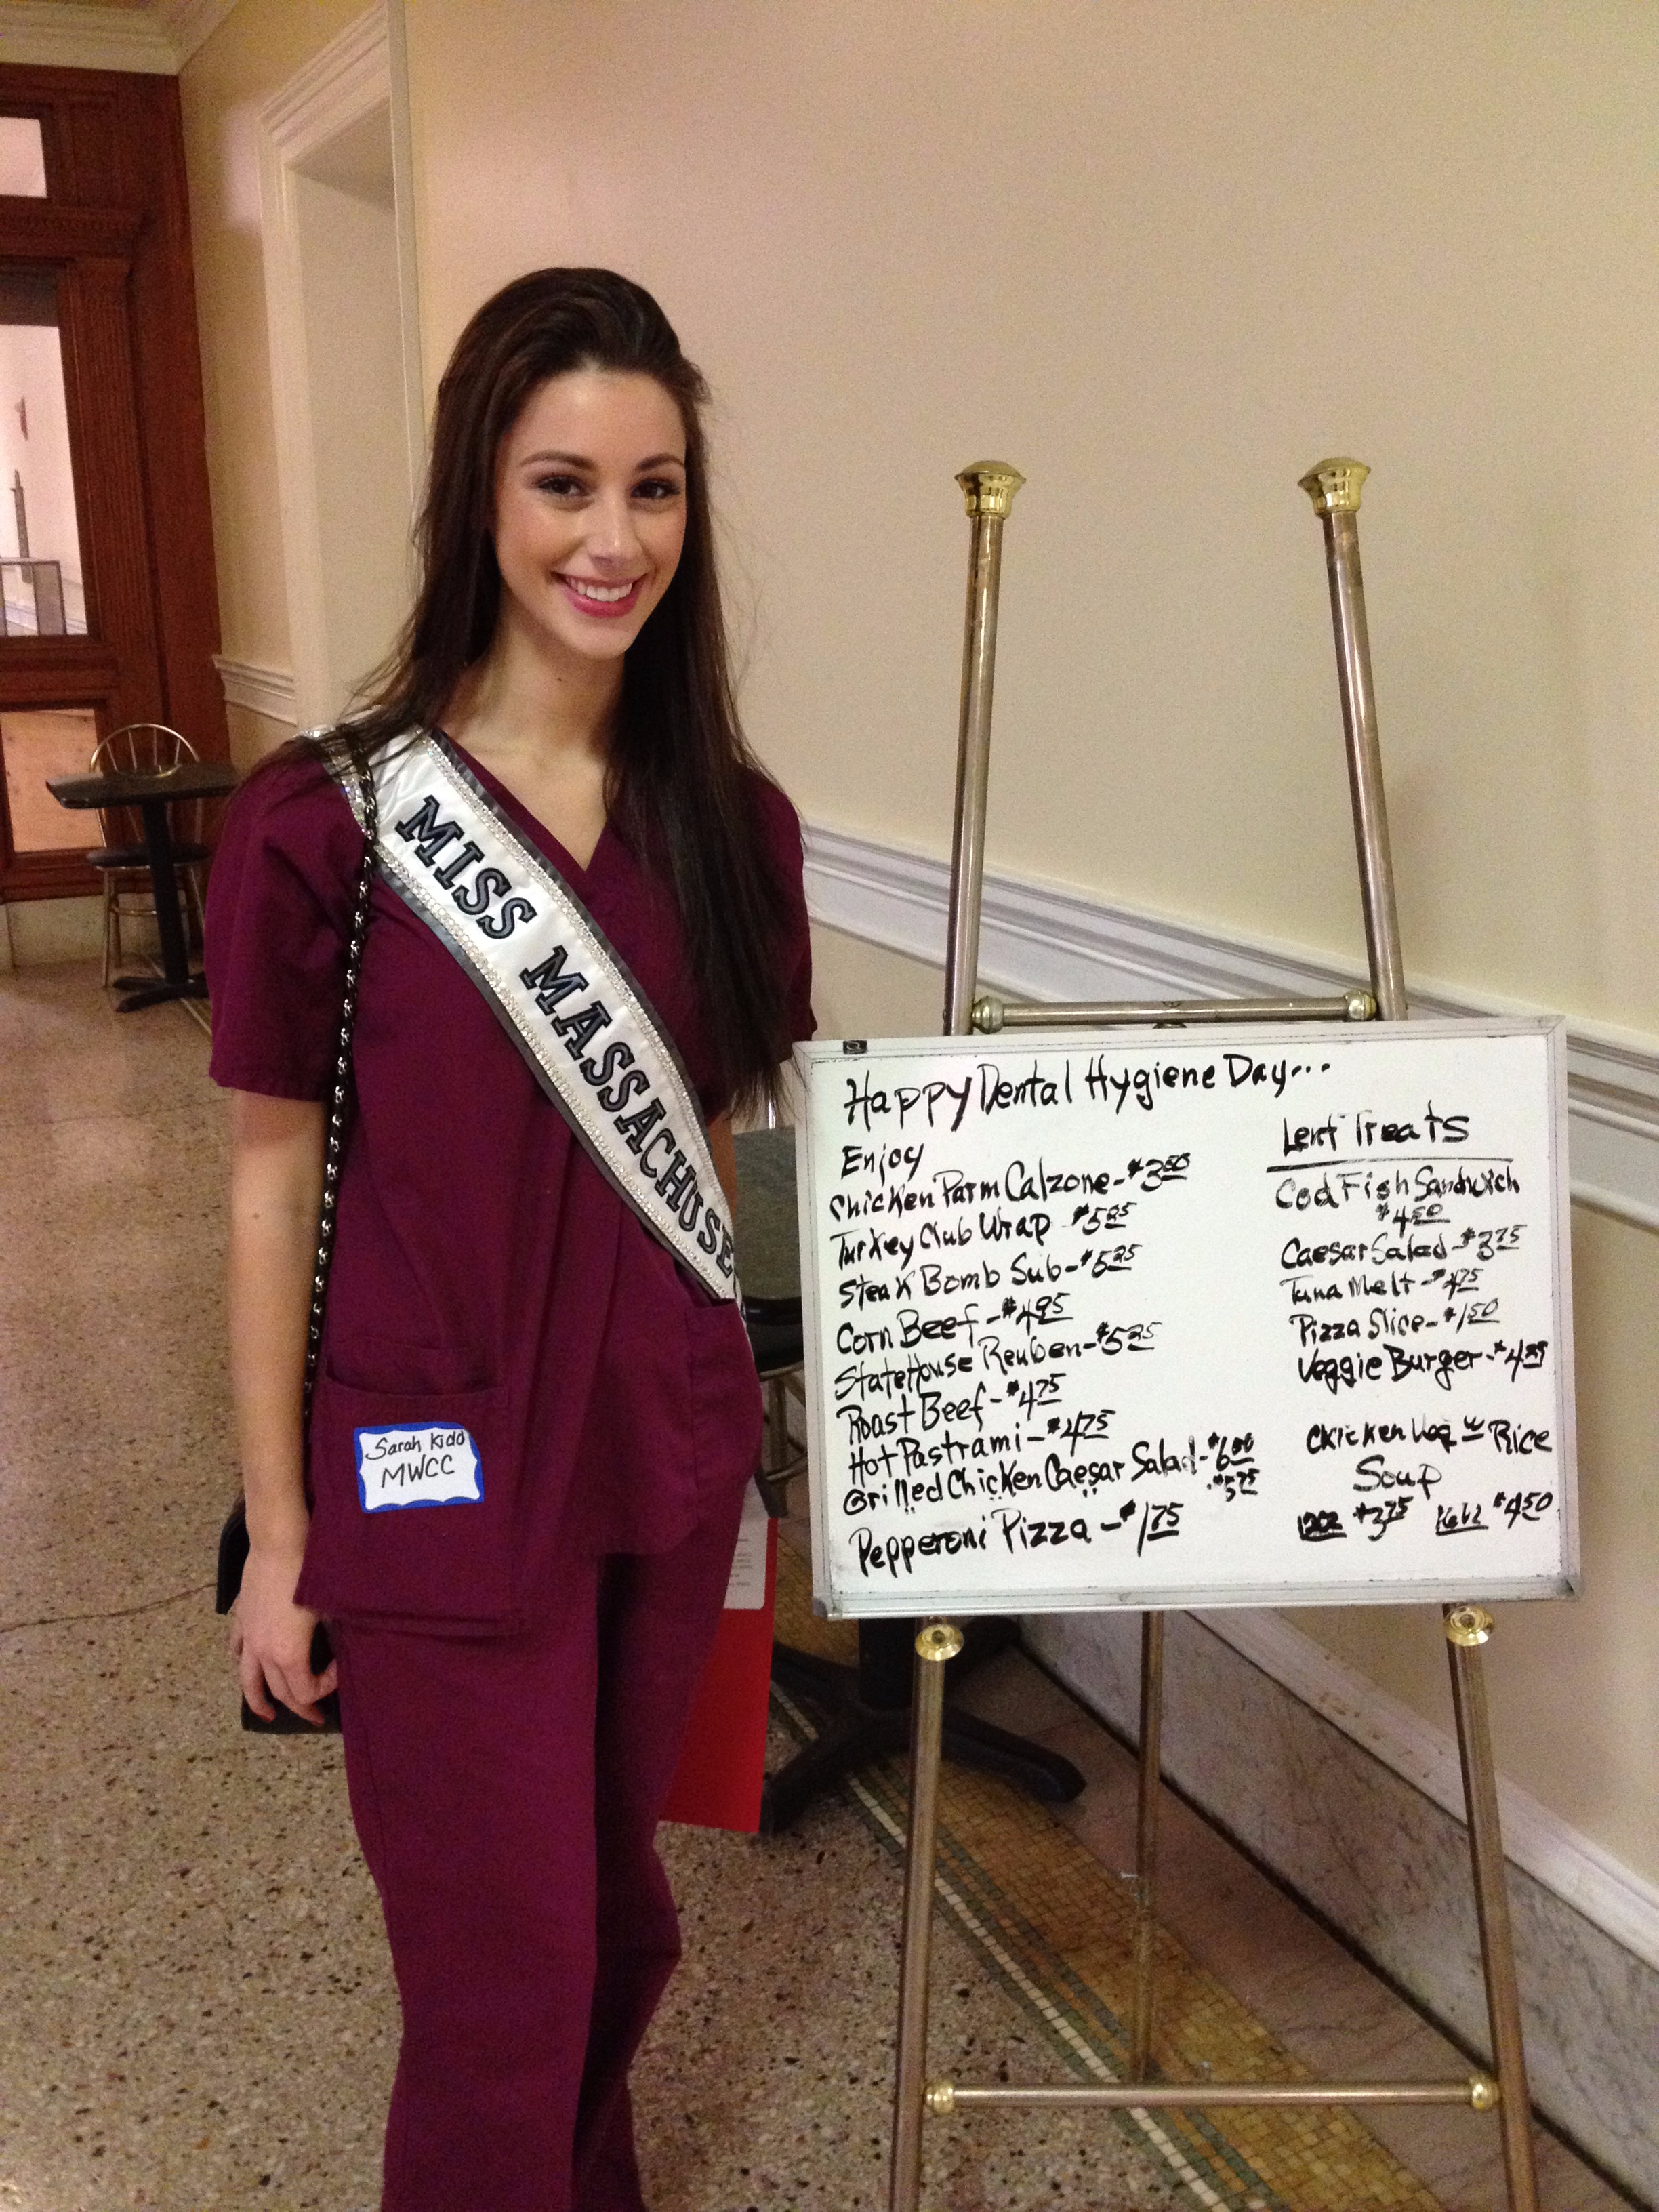 MISS MASSACHUSE
Sarah Kidd
MWCC
Happy Dental Hygiene Day...
Enjoy
Chicken Parm Calzone - $3.50
Turkey Club Wrap $5.25
Steak Bomb Sub - $5.25
Corn Beef - $4.95
StateHouse Reuben - $5.25
Roast Beef - $4.75
Hot Pastrami - $4.75
Grilled Chicken Caesar Salad - $6.00
$5.75
Pepperoni Pizza - $1.75
Lent Treats
Cod Fish Sandwich
$4.50
Caesar Salad - $3.75
Tuna Melt - $4.75
Pizza Slice - $1.50
Veggie Burger - $4
Chicken Veg w Rice
Soup
12oz $3.75 16oz $4.50